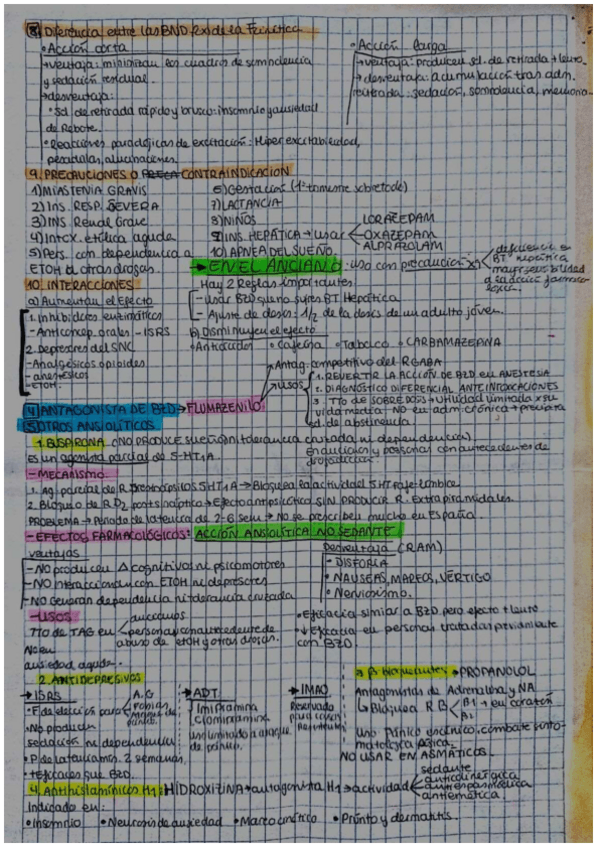 8. Diferencia entre las BND fxn de la Fcinética
• Acción corta
→ventaja: minimizan los cuadros de somnolencia
y sedación residual.
→desventaja:
• Sd. de retirada rápido y brusco: insomnio y ansiedad
de Rebote.
• Reacciones paradójicas de excitación: Hiperexcitabilidad,
pesadillas, alucinaciones.
• Acción larga
→ventaja: producen sd. de retirada + lento.
→desventaja: acumulación tras adm.
reiterada: sedación, somnolencia, memoria.
9. PRECAUCIONES O CONTRAINDICACION
1) MIASTENIA GRAVIS
2) INS. RESP. SEVERA
3) INS Renal Grave
4) Intox. etílica aguda
5) Pers. con dependencia a
ETOH u otras drogas.
6) Gestación (1º trimestre sobretodo)
7) LACTANCIA
8) NIÑOS
9) INS. HEPÁTICA → usar
LORAZEPAM
OXAZEPAM
ALPRAZOLAM
10) APNEA DEL SUEÑO
→ EN EL ANCIANO: uso con precaución xq
deficiencia en
BT hepática
mayor sensibilidad
a la acción farmaco-
lógica.
Hay 2 Reglas importantes
- usar BZD que no sufra BT Hepática
- Ajuste de dosis: 1/2 de la dosis de un adulto joven.
10. INTERACCIONES
a) Aumentan el Efecto
1. Inhibidores enzimáticos
- Anticoncep. orales - ISRS
2. Depresores del SNC
- Analgésicos opioides
- anestésicos
- ETOH.
b) Disminuyen el efecto
• Antiácidos • Cafeína • Tabaco • CARBAMAZEPINA
4) ANTAGONISTA DE BZD → FLUMAZENILO
→ Antag. competitivo del RGABA
→ usos
1. REVERTIR LA ACCIÓN DE BZD EN ANESTESIA
2. DIAGNÓSTICO DIFERENCIAL ANTE INTOXICACIONES
3. TTo DE SOBREDOSIS → Utilidad limitada x su
vida media. NO en adm. crónica → precipita
sd. de abstinencia.
5) OTROS ANSIOLÍTICOS
1. BUSPIRONA (NO PRODUCE sueño ni tolerancia cruzada, ni dependencia).
Es un agonista parcial de 5-HT1A.
en ancianos y personas con antecedentes de
drogadicción.
- MECANISMO.
1. Ag. parcial de R presinápticos 5HT1A → Bloquea la actividad 5HT rafe-límbica.
2. Bloqueo de RD2 postsináptico → Efecto antipsicótico SIN PRODUCIR R. Extrapiramidales.
PROBLEMA → Periodo de latencia de 2-6 sem → No se prescribe mucho en España.
- EFECTOS FARMACOLÓGICOS: ACCIÓN ANSIOLÍTICA NO SEDANTE
ventajas
- NO producen Δ cognitivas ni psicomotores
- NO interaccionan con ETOH ni depresores
- NO Generan dependencia ni tolerancia cruzada
Desventaja (RAM)
- DISFORIA
• NAUSEAS, MAREOS, VÉRTIGO
• Nerviosismo.
- USOS
TTo de TAG en
ancianos
personas con antecedente de
abuso de ETOH y otras drogas.
No en
ansiedad aguda.
• Eficacia similar a BZD pero efecto + lento
• ↓ Eficacia en personas tratadas previamente
con BZD.
2. ANTIDEPRESIVOS
→ ISRS
• F de elección para
A.G
Fobias
Ataque de
pánico.
• No producen
sedación ni dependencia
• P de latencia ≈ 2 semanas.
• + Eficaces que BZD.
→ ADT
Imipramina
Clomipramina
uso limitado a ataque
de pánico.
→ IMAO
Reservado
para casos
3. β bloqueantes → PROPANOLOL
Antagonistas de Adrenalina y NA
↳ Bloquea RB
β1 → en corazón
β2
uso: Pánico escénico, combate sinto-
matología física.
NO USAR EN ASMÁTICOS.
4. Antihistamínicos H1: HIDROXIZINA → antagonista H1 → actividad
sedante
anticolinérgica
antiespasmódica
antiemética.
Indicado en:
• Insomnio • Neurosis de ansiedad • Mareo cinético • Prurito y dermatitis.